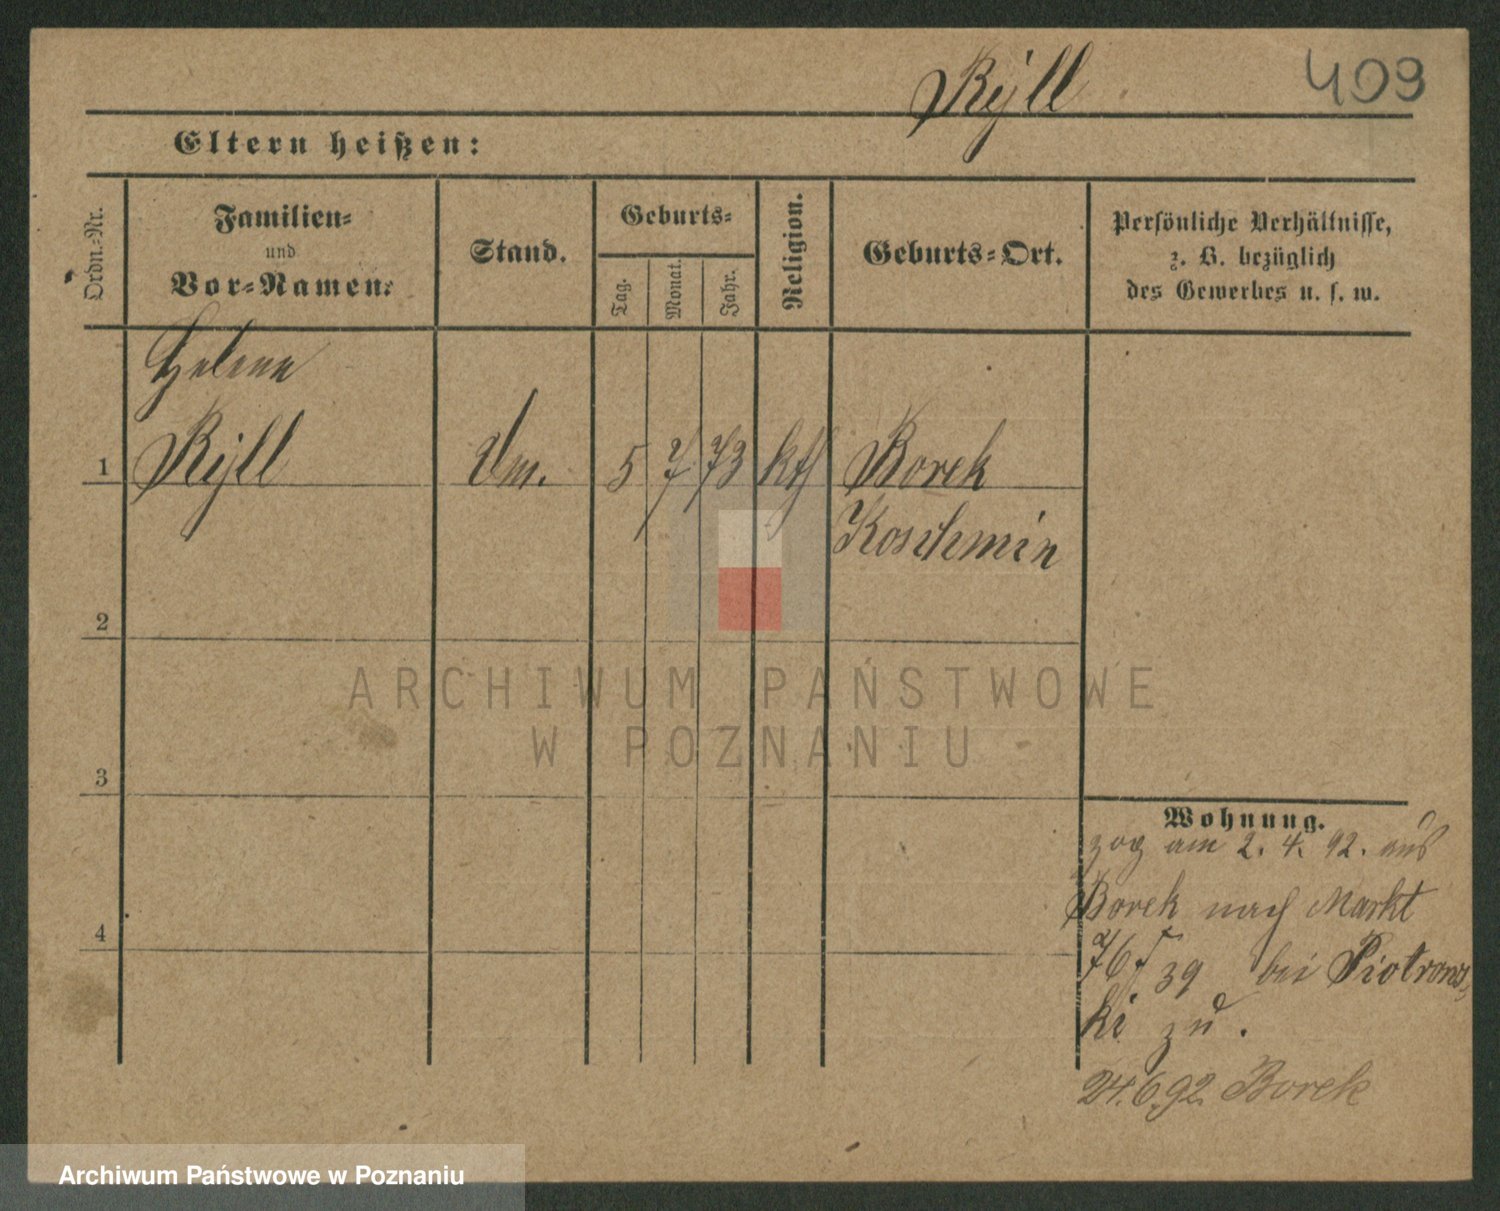 Ryll 409
Eltern heißen:
Ordn.-Nr.
Familien-
und
Vor-Namen:
Stand.
Geburts-
Tag.
Monat.
Jahr.
Religion.
Geburts-Ort.
Persönliche Verhältnisse,
z. B. bezüglich
des Gewerbes u. s. w.
Helene
1 Ryll 5 7 73 kth Borek
Koschmin
2
ARCHIWUM PAŃSTWOWE
W POZNANIU
3
Wohnung.
zog am 2. 4. 92. aus
Borek nach Markt
4
bei Piotrows
ki zu.
24.6.92 Borek
Archiwum Państwowe w Poznaniu